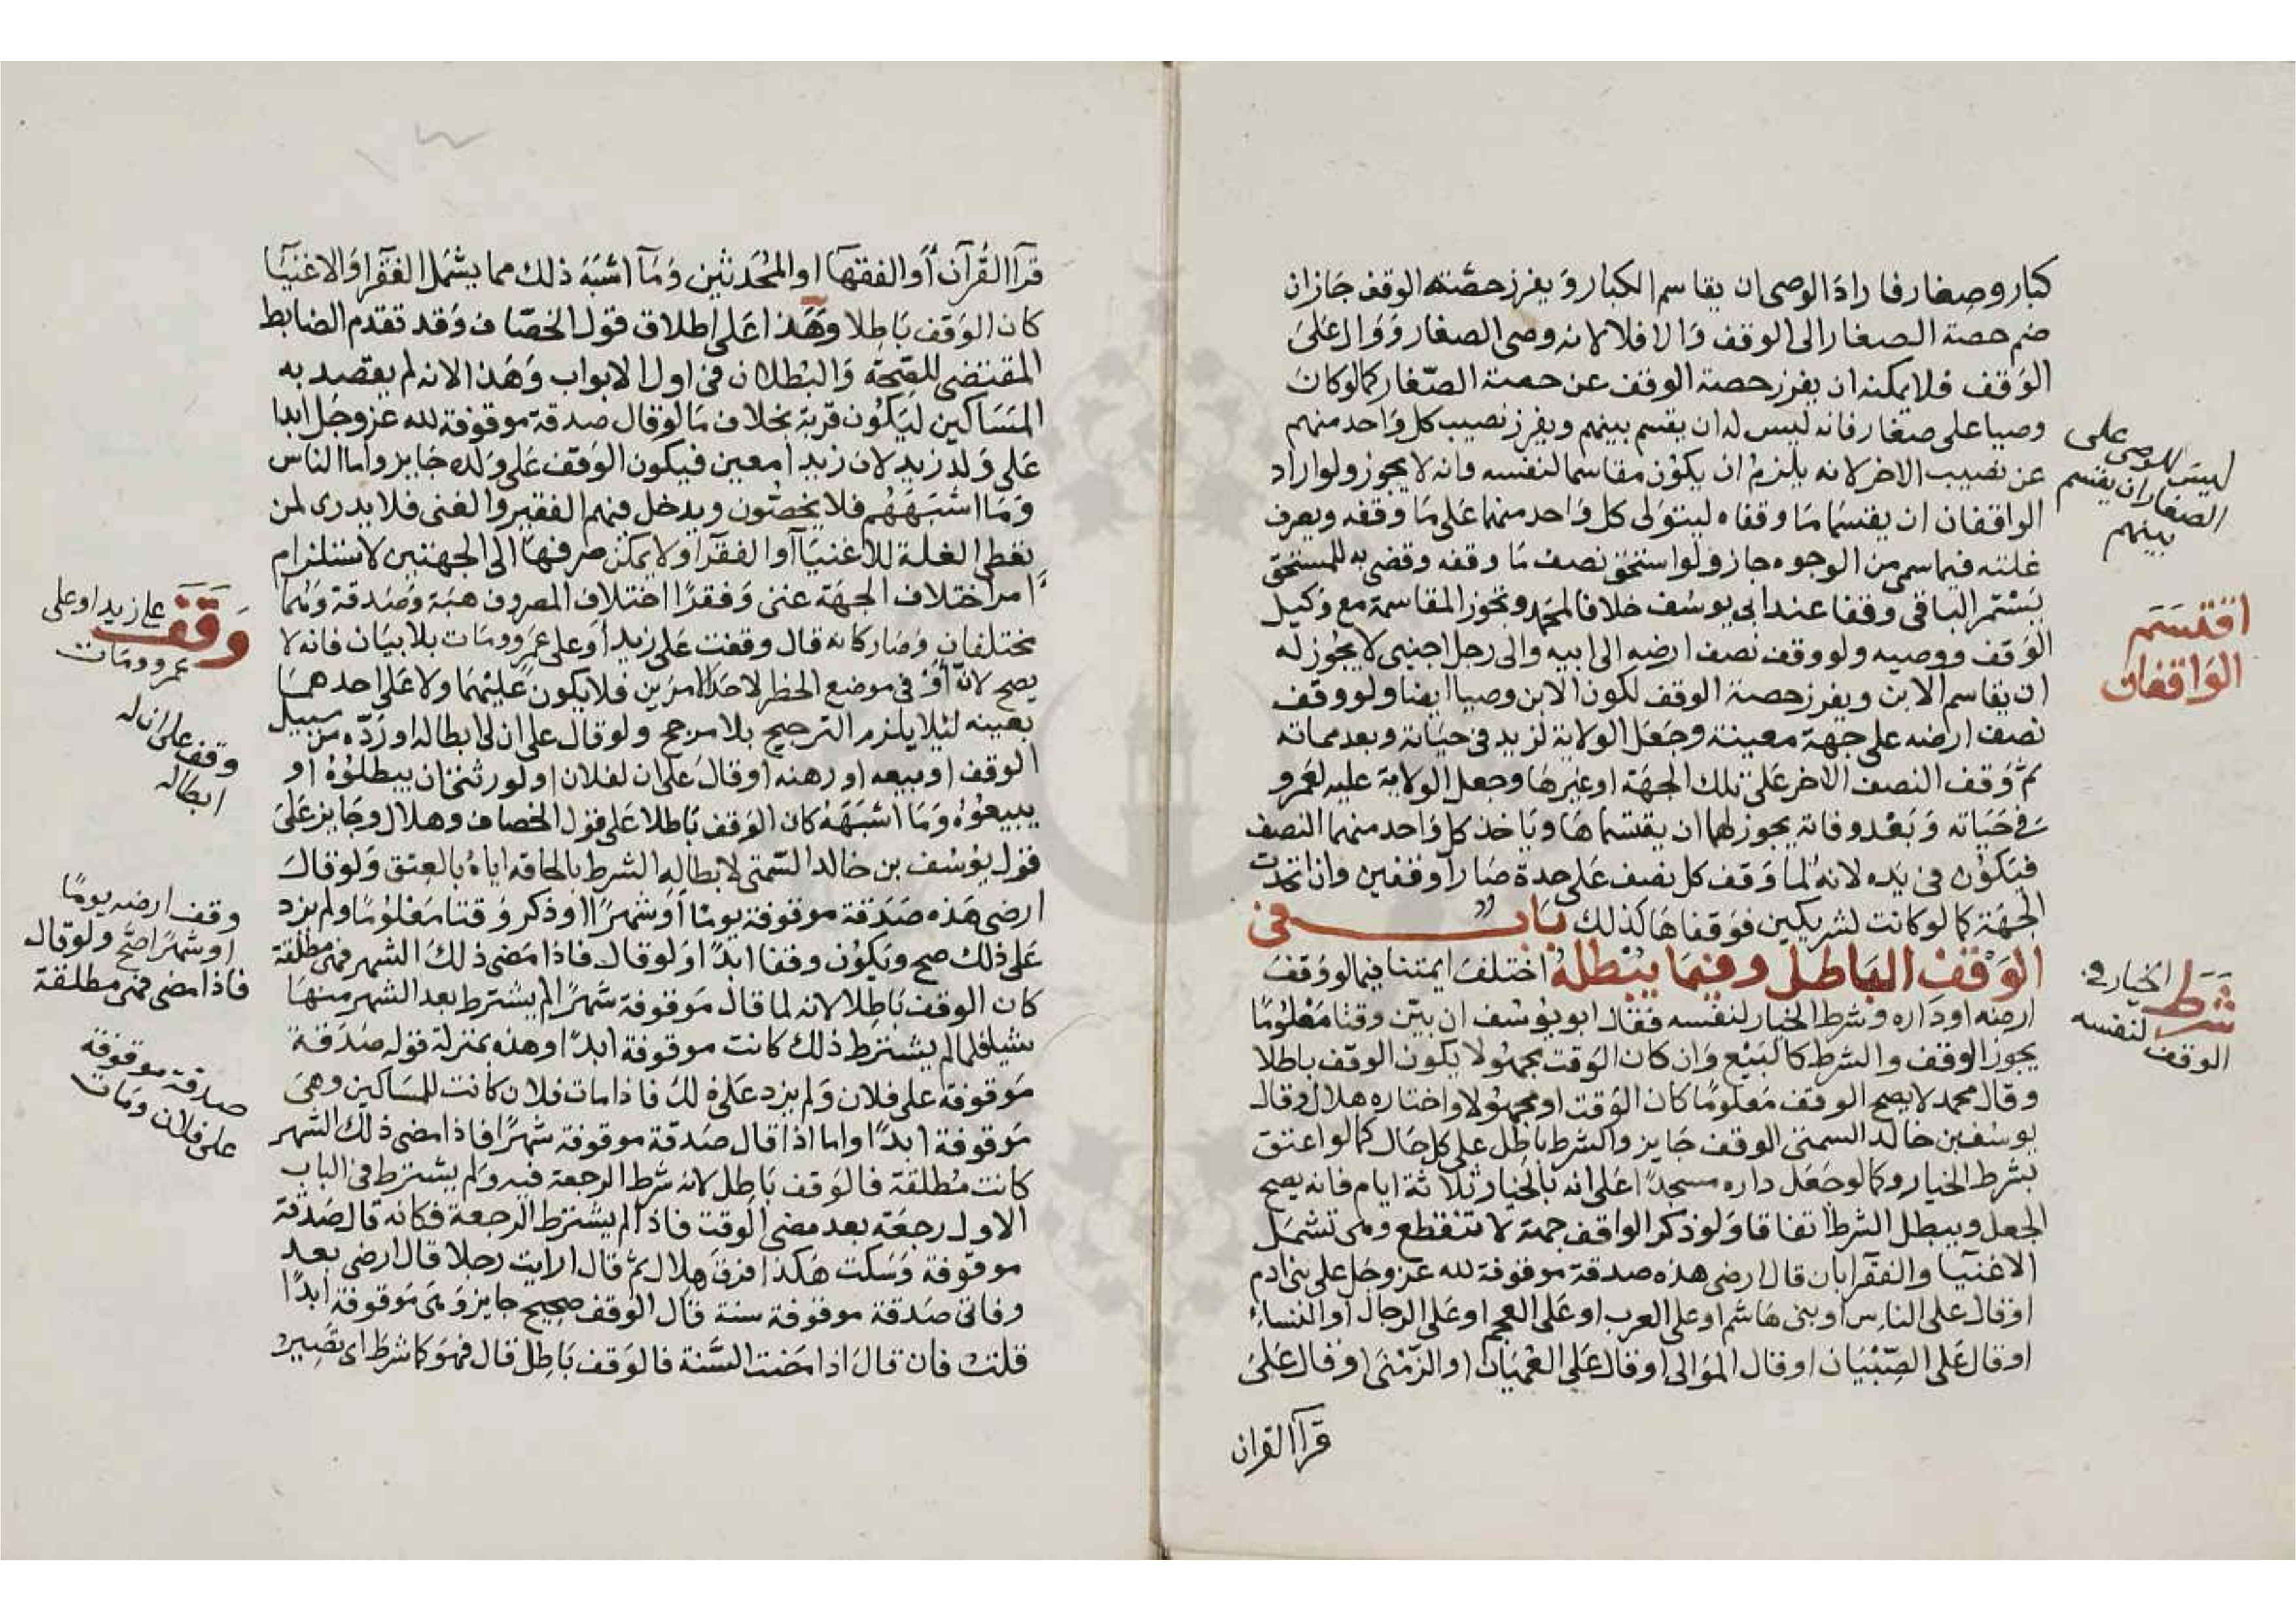 كبار وصغار فاراد الوصى ان يقاسم الكبار ويفرز حصته الوقف جاز ان
ضم حصة الصغار الى الوقف والا فلا لانه وصى الصغار ووال على
الوقف فلا يمكنه ان يفرز حصة الوقف عن حصة الصغار كما لو كان
وصيا على صغار فانه ليس له ان يقسم بينهم ويفرز نصيب كل واحد منهم
عن نصيب الاخر لانه يلزم ان يكون مقاسما لنفسه وانه لا يجوز ولو اراد
الواقفان ان يقتسما ما وقفاه ليتولى كل واحد منهما على ما وقفه ويصرف
غلته فيما سمى من الوجوه جاز ولو استحق نصف ما وقفه وقضى به للمستحق
يستمر الباقى وقفا عند ابى يوسف خلافا لمحمد وتجوز المقاسمة مع وكيل
الوقف ووصيه ولو وقف نصف ارضه الى ابيه والى رجل اجنبى لا يجوز له
ان يقاسم الابن ويفرز حصة الوقف لكون الابن وصيا ايضا ولو وقف
نصف ارضه على جهة معينة وجعل الولاية لزيد فى حياته وبعد مماته
ثم وقف النصف الاخر على تلك الجهة او غيرها وجعل الولاية عليه لعمرو
فى حياته وبعد وفاته يجوز لهما ان يقتسماها وياخذ كل واحد منهما النصف
فيكون فى يده لانه لما وقف كل نصف على حدة صارا وقفين وان اتحدت
الجهة كما لو كانت لشريكين فوقفاها كذلك باب فى
الوقف الباطل وفيما يبطله اختلف ايمتنا فيما لو وقف
ارضه او داره وشرط الخيار لنفسه فقال ابو يوسف ان بين وقتا معلوما
يجوز الوقف والشرط كالبيع وان كان الوقت مجهولا يكون الوقف باطلا
وقال محمد لا يصح الوقف معلوما كان الوقت او مجهولا واختاره هلال وقال
يوسف بن خالد السمتى الوقف جايز والشرط باطل على كل حال كما لو اعتق
بشرط الخيار وكما لو جعل داره مسجدا على انه بالخيار ثلاثة ايام فانه يصح
الجعل ويبطل الشرط اتفاقا ولو ذكر الواقف جهة لا تنقطع وهى تشمل
الاغنيا والفقرا بان قال ارضى هذه صدقة موقوفة لله عز وجل على بنى ادم
او قال على الناس او بنى هاشم او على العرب او على العجم او على الرجال او النساء
او قال على الصبيان او قال الموالى او قال على العميان او الزمنى او قال على
قرآ القران
ليس للوصى على
الصغار ان يقسم
بينهم
اقتسم
الواقفان
شرط الخيار فى
الوقف لنفسه
قرآ القرآن أو الفقها او المحدثين وما اشبه ذلك مما يشمل الفقرا والاغنيا
كان الوقف باطلا وهذا على اطلاق قول الخصاف وقد تقدم الضابط
المقتضى للصحة والبطلان فى اول الابواب وهذا لانه لم يقصد به
المساكين ليكون قربة بخلاف ما لو قال صدقة موقوفة لله عز وجل ابدا
على ولد زيد لان زيدا معين فيكون الوقف على ولده جايز واما الناس
وما اشبههم فلا يخصون ويدخل فيهم الفقير والغنى فلا يدرى لمن
تعطى الغلة للاغنيا او الفقرا ولا يمكن صرفها الى الجهتين لاستلزام
امر اختلاف الجهة غنى وفقرا اختلاف المصروف هبة وصدقة وهما
مختلفان وصار كانه قال وقفت على زيد أو على عمرو ومات بلا بيان فانه لا
يصح لانّ أو فى موضع الحظر لاحد الامرين فلا يكون عليهما ولا على احدهما
بعينه لئلا يلزم الترجيح بلا مرجح ولو قال على ان لى ابطاله او ردّه من سبيل
الوقف او بيعه او رهنه او قال على ان لفلان او لورثتى ان يبطلوه او
يبيعوه وما اشبهه كان الوقف باطلا على قول الخصاف وهلال وجايز على
قول يوسف بن خالد السمتى لابطاله الشرط بالحاقه اياه بالعتق ولو قال
ارضى هذه صدقة موقوفة يوما أو شهرا او ذكر وقتا معلوما ولم يزد
على ذلك صح ويكون وقفا ابدا ولو قال فاذا مضى ذلك الشهر فهى مطلقة
كان الوقف باطلا لانه لما قال موقوفة شهرا لم يشترط بعد الشهر منها
شيا فلما لم يشترط ذلك كانت موقوفة ابدا وهذه بمنزلة قوله صدقة
موقوفة على فلان ولم يزد على ذلك فاذا مات فلان كانت للمساكين وهى
موقوفة ابدا واما اذا قال صدقة موقوفة شهرا فاذا مضى ذلك الشهر
كانت مطلقة فالوقف باطل لانه شرط الرجعة فيه ولم يشترط فى الباب
الاول رجعة بعد مضى الوقت فاذا لم يشترط الرجعة فكانه قال صدقة
موقوفة وسكت هكذا فرق هلال ثم قال ارايت رجلا قال ارضى بعد
وفاتى صدقة موقوفة سنة قال الوقف صحيح جايز وهى موقوفة ابدا
قلت فان قال اذا مضت السنة فالوقف باطل قال فهو كما شرط اى تصير
وقف على زيد او على
عمرو ومات
وقف على ان له
ابطاله
وقف ارضه يوما
او شهرا صح ولو قال
فاذا مضى فهى مطلقة
صدقة موقوفة
على فلان ومات